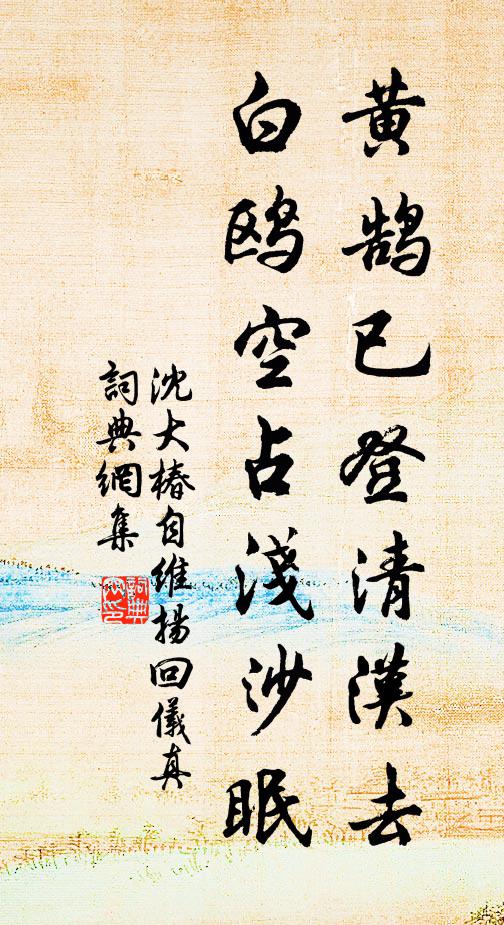 黄鹄已登清漢去
白鸥空占淺沙眠
沈大椿自維揚回儀真
詞典網集